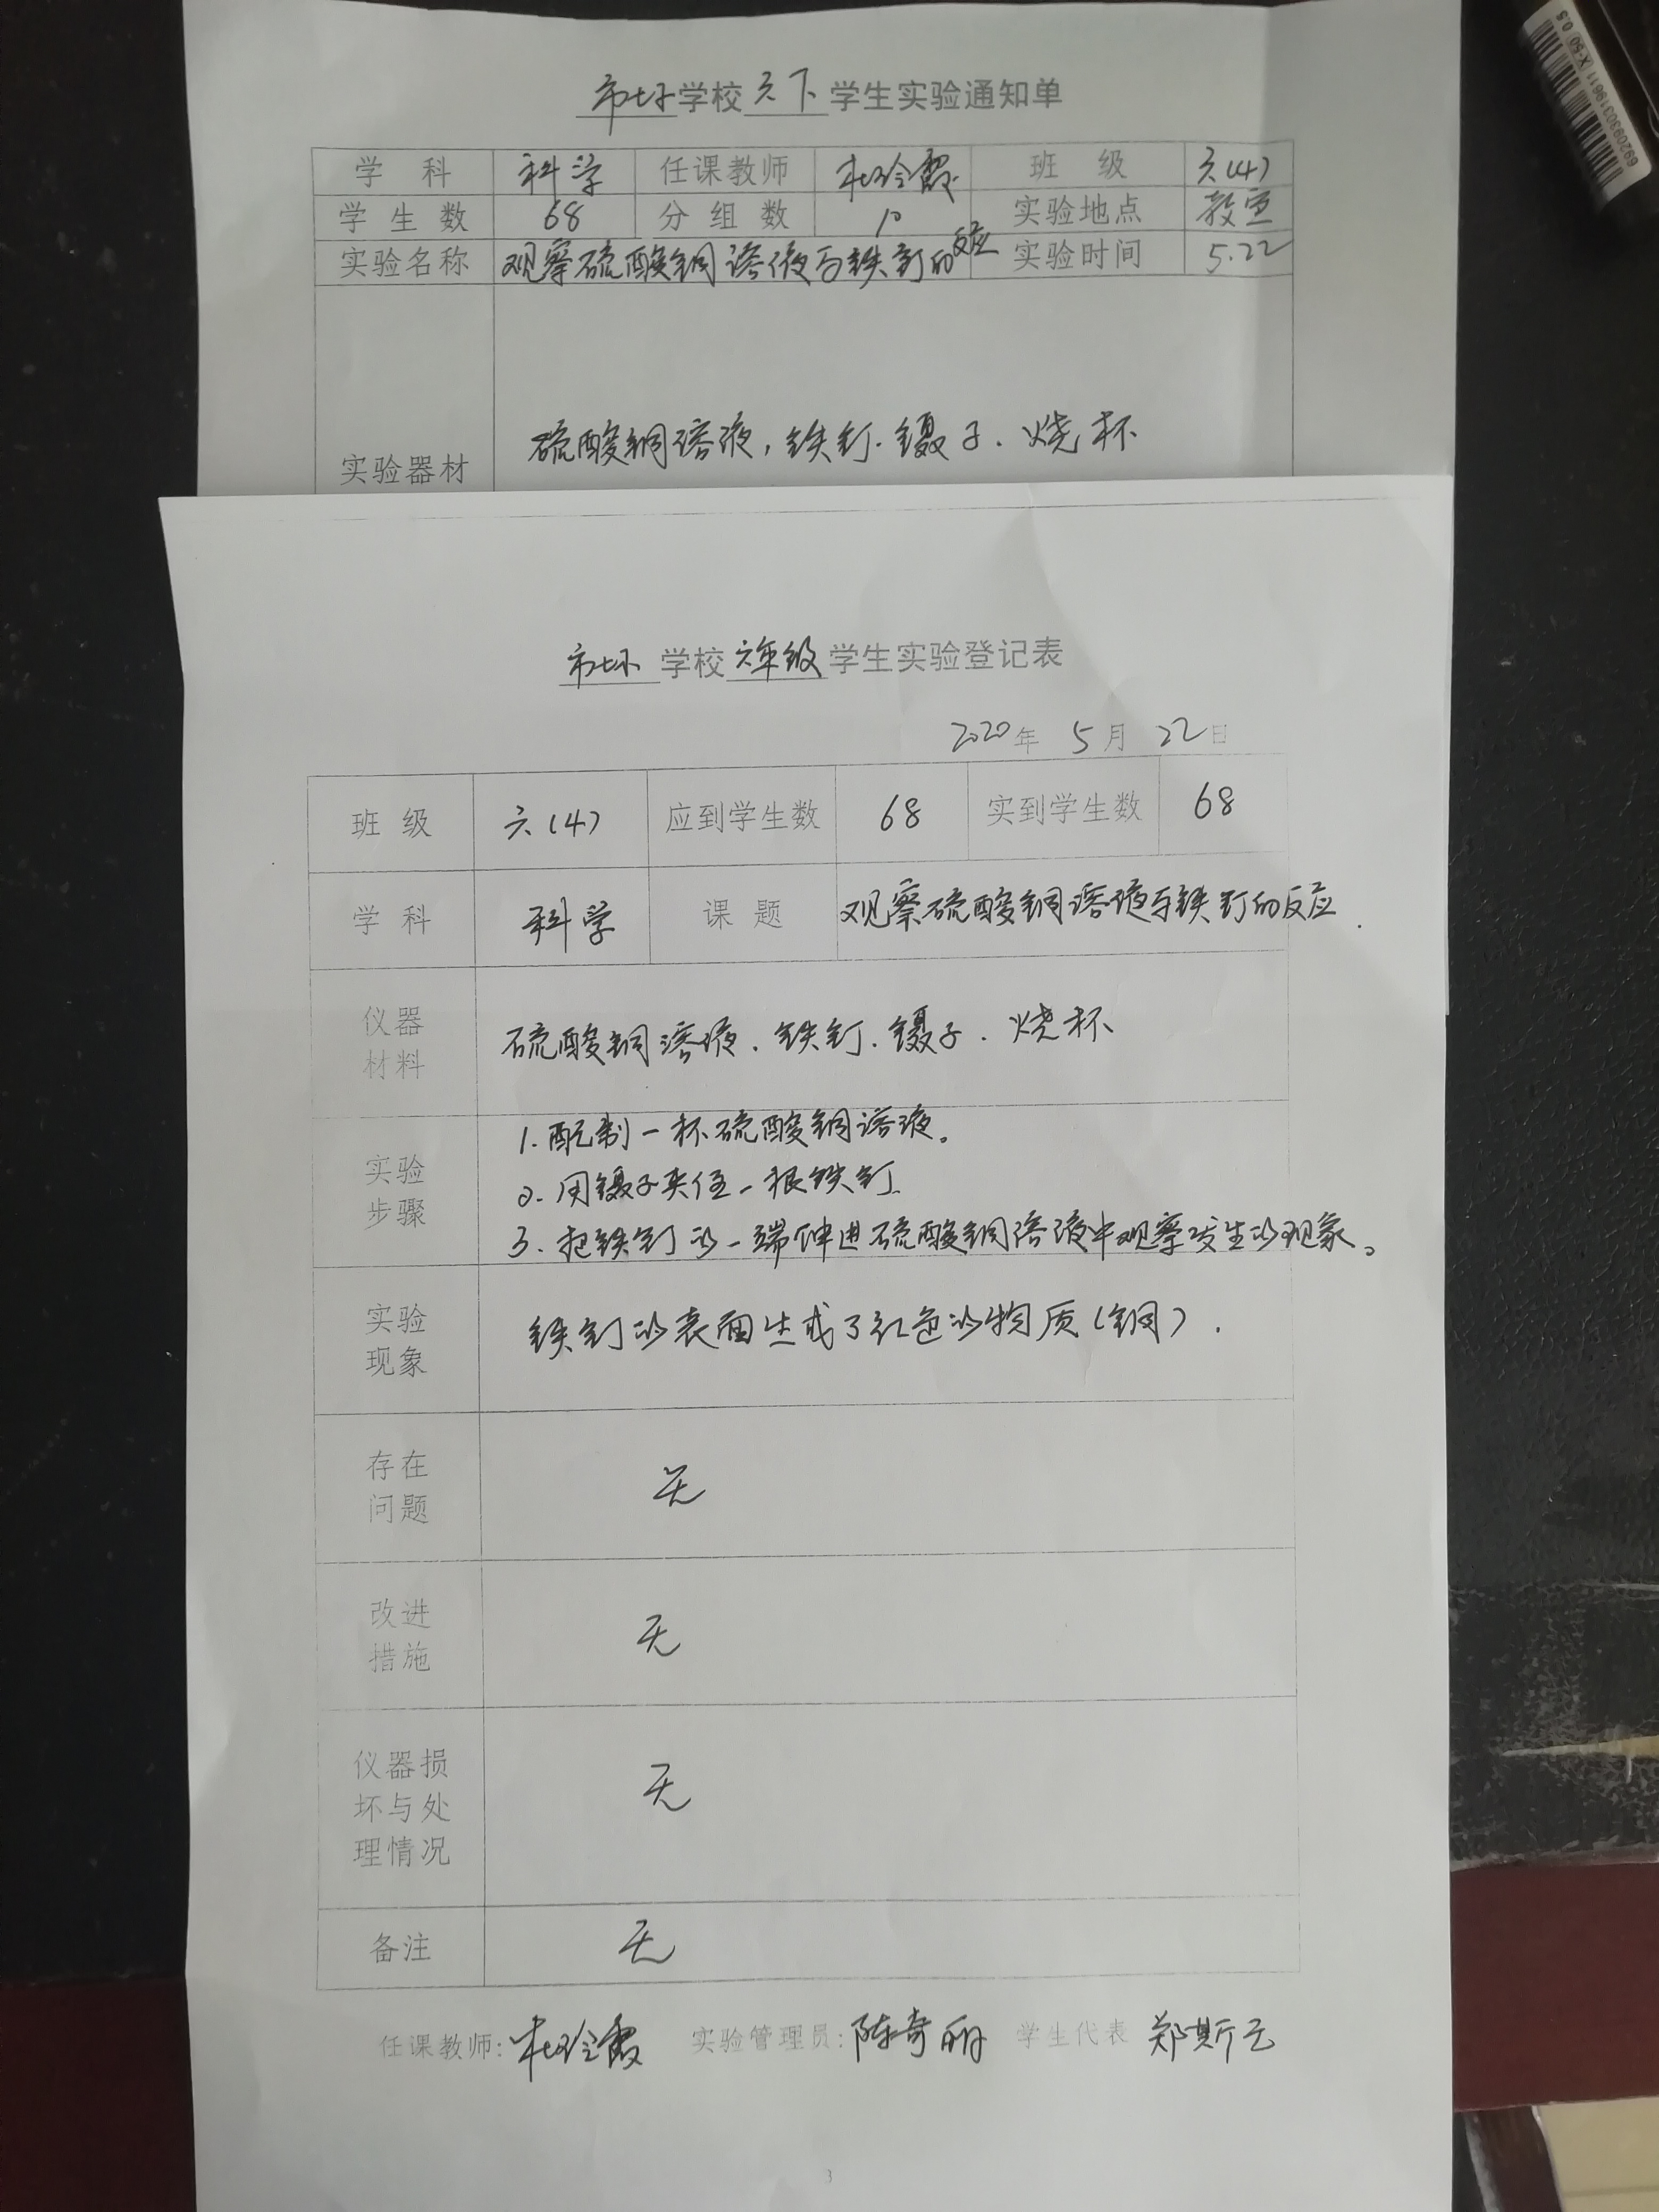 学校 六下 学生实验通知单
学 科 科学 任课教师 班 级 六(4)
学 生 数 68 分 组 数 10 实验地点 教室
实验名称 观察硫酸铜溶液与铁钉的反应 实验时间 5.22
硫酸铜溶液,铁钉.镊子.烧杯
实验器材
学校 六年级 学生实验登记表
2020年 5月 22日
班 级 六(4) 应到学生数 68 实到学生数 68
学 科 科学 课 题 观察硫酸铜溶液与铁钉的反应.
仪器
材料
硫酸铜溶液.铁钉.镊子.烧杯
实验
步骤
1.配制一杯硫酸铜溶液。
2.用镊子夹住一根铁钉.
3.把铁钉的一端伸进硫酸铜溶液中观察发生的现象。
实验
现象
铁钉的表面生成了红色的物质(铜).
存在
问题
无
改进
措施
无
仪器损
坏与处
理情况
无
备注 无
任课教师: 实验管理员:陈奇丽 学生代表 郑斯云
3
6920930319611 X-50 0.5